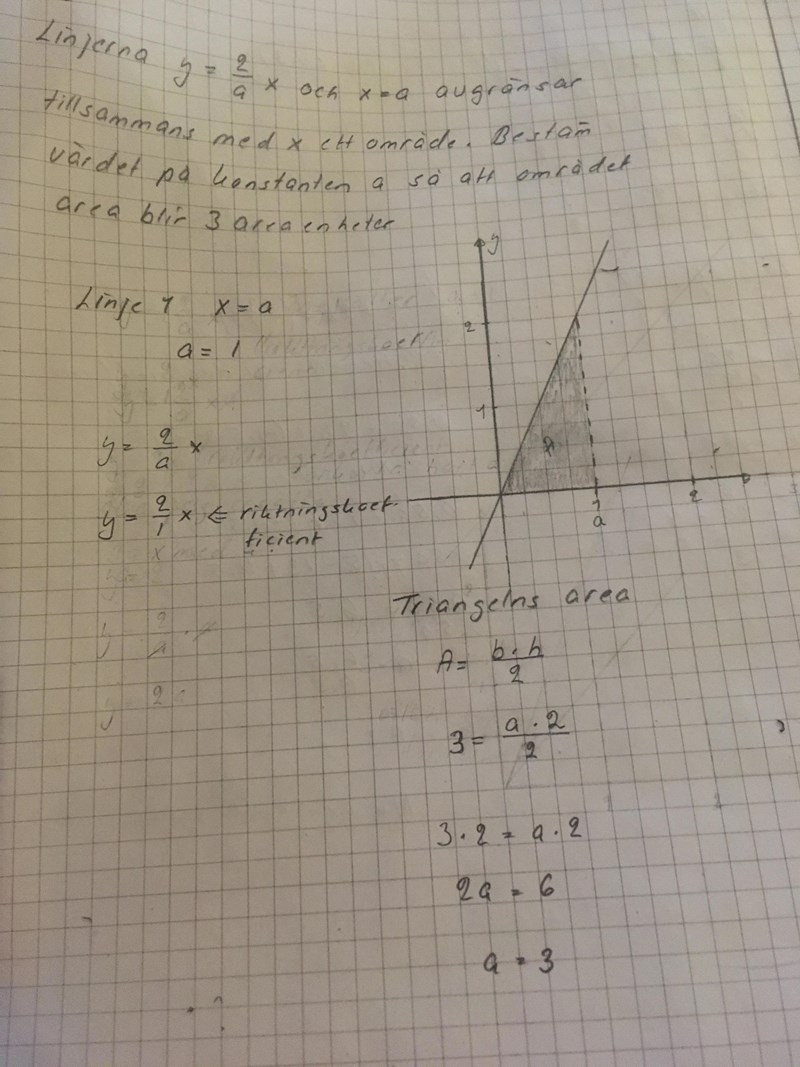 Linjerna y = 2/a x och x = a avgränsar
tillsammans med x ett område. Bestäm
värdet på konstanten a så att området
area blir 3 areaenheter
Linje 1 x = a
a = 1
y = 2/a x
y = 2/1 x ⇐ riktningskoef
ficient
y
2
1
A
1
2
a
Triangelns area
A = b·h/2
3 = a·2/2
3·2 = a·2
2a = 6
a = 3